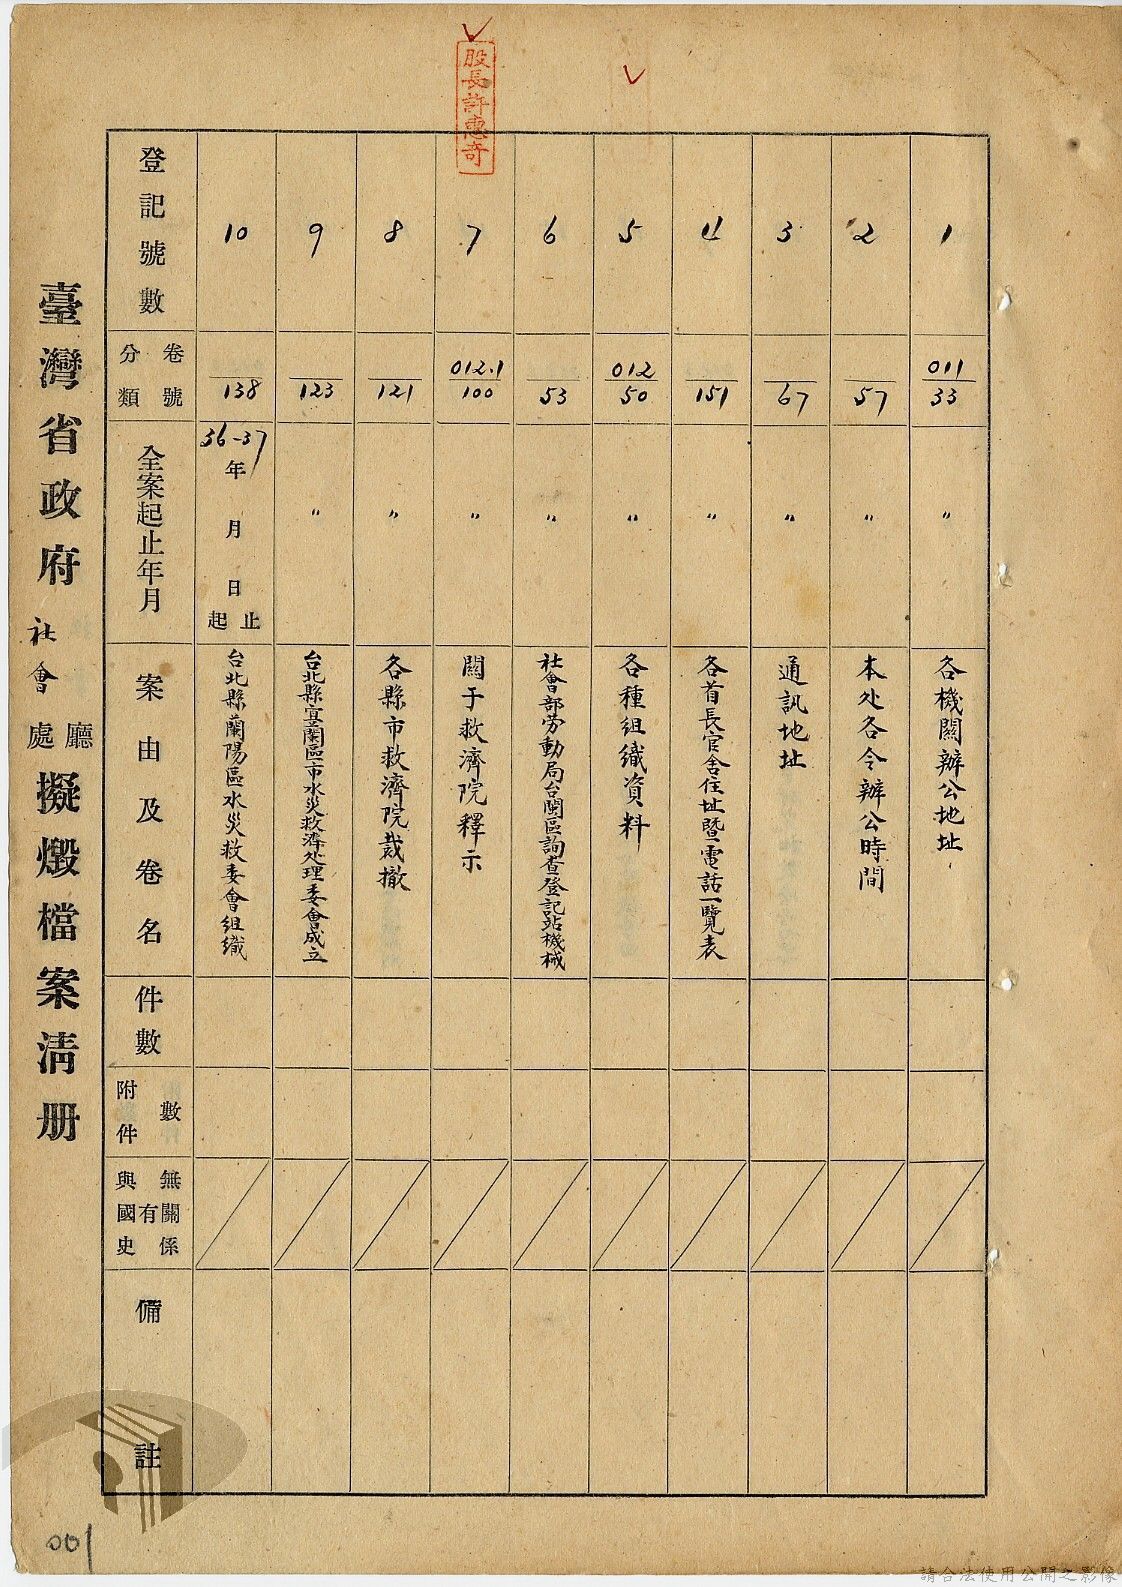 股長許惠奇
臺灣省政府社會處廳擬燬檔案清册
登記號數
卷號分類
全案起止年月
案由及卷名
件數
附件數
與國史有無關係
備註
10
138
36-37年月日起止
台北縣蘭陽區水災救委會組織
9
123
〃
台北縣宜蘭區市水災救濟处理委會成立
8
121
〃
各縣市救濟院裁撤
7
012.1
100
〃
關于救濟院釋示
6
53
〃
社會部劳動局台閩區調查登記站機械
5
012
50
〃
各種組織資料
4
151
〃
各首長官舍住址暨電話一覽表
3
67
〃
通訊地址
2
57
〃
本处各令辦公時間
1
011
33
〃
各機關辦公地址
001
請合法使用公開之影像